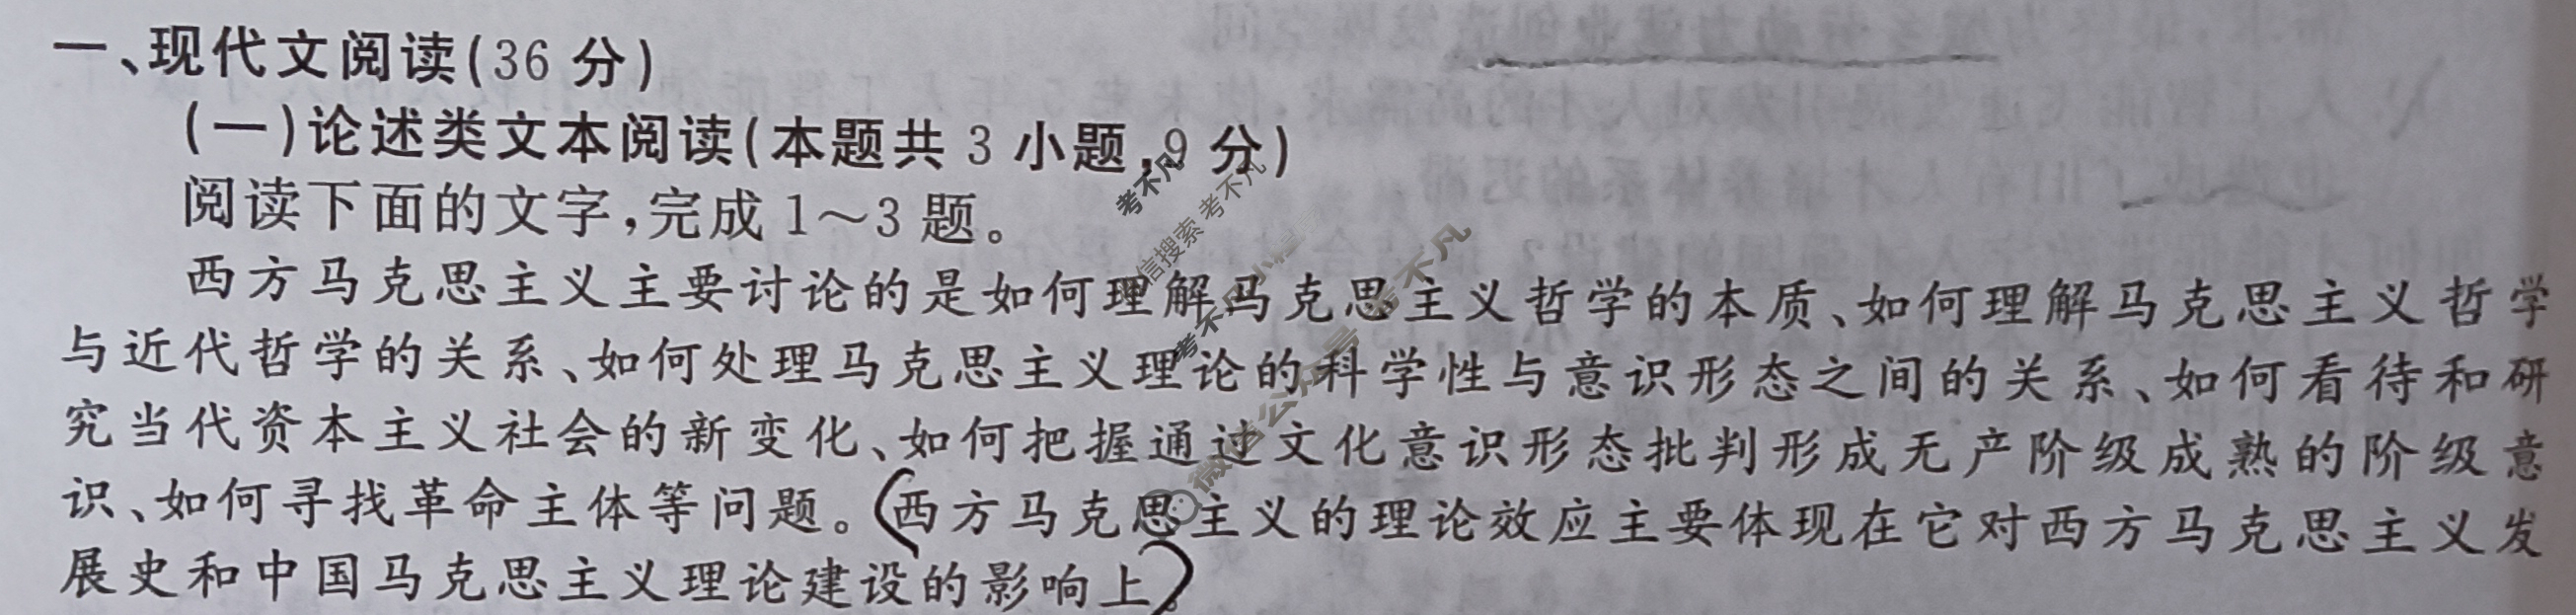 一、现代文阅读(36 分)
(一)论述类文本阅读(本题共 3 小题,9 分)
阅读下面的文字,完成 1～3 题。
西方马克思主义主要讨论的是如何理解马克思主义哲学的本质、如何理解马克思主义哲学
与近代哲学的关系、如何处理马克思主义理论的科学性与意识形态之间的关系、如何看待和研
究当代资本主义社会的新变化、如何把握通过文化意识形态批判形成无产阶级成熟的阶级意
识、如何寻找革命主体等问题。(西方马克思主义的理论效应主要体现在它对西方马克思主义发
展史和中国马克思主义理论建设的影响上)。
考不凡
微信搜索 考不凡
考不凡小程序
微信公众号 考不凡